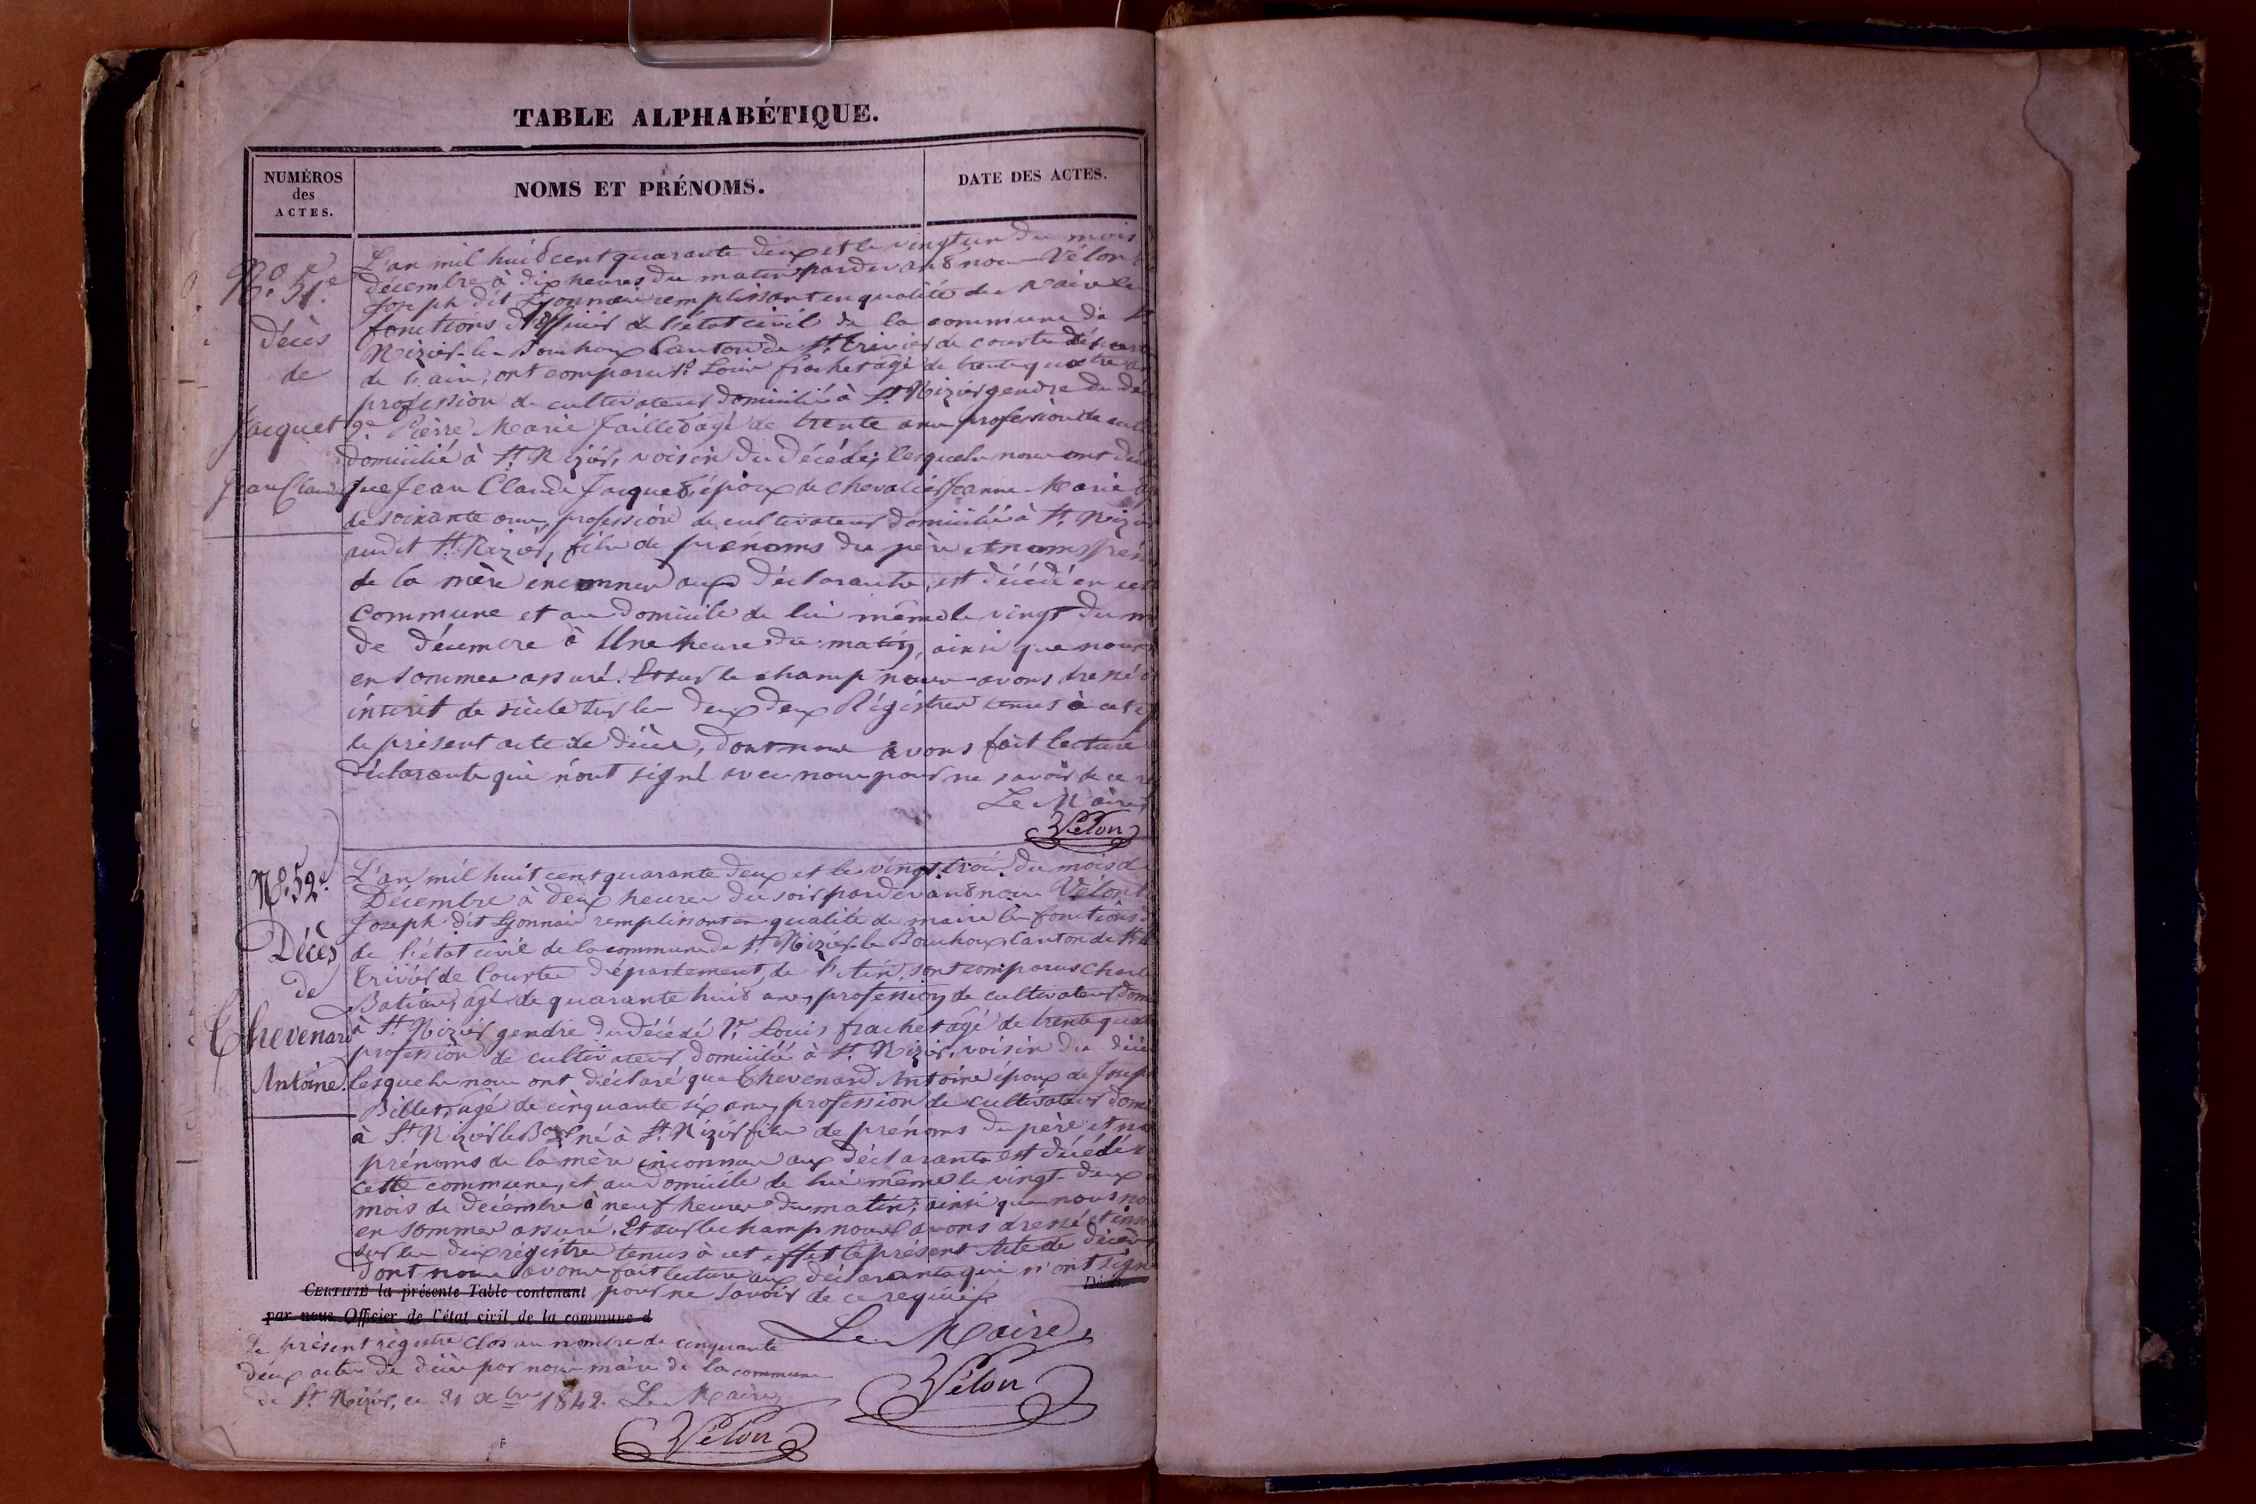 TABLE ALPHABÉTIQUE.
NUMÉROS
des
ACTES.
NOMS ET PRÉNOMS.
DATE DES ACTES.
No. 51e
Décès
de
Jacquet
Jean Claude
L'an mil huit cent quarante deux et le vingt un du mois
décembre à dix heures du matin pardevant nous Vélon
Joseph dit Lyonnais remplissant en qualité de Maire les
fonctions d'officier de l'état civil de la commune de St
Nizier-le-Bouchoux Canton de St. Trivier de Courtes dépar
de l'ain, ont comparus 1º Louis frachet âgé de trente quatre a
profession de cultivateur domicilié à St Nizier gendre du dé
2e Pierre Marie Jaillet âgé de trente ans profession de cult
domicilié à St Nizier, voisin du décédé, lesquels nous ont dé
que Jean Claude Jacquet, époux de Chevalier Jeanne Marie
de soixante ans profession de cultivateur domicilié à St. Nizier
audit St. Nizier, fils de prénoms du père et noms pré
de la mère inconnus aux déclarants, est décédé en cet
commune et au domicile de lui même le vingt du m
de décembre à Une heure du matin, ainsi que nous
en sommes assuré. Et sur le champ nous avons dressé
inscrit de suite sur les deux deux Régistres tenus à cet ef
le présent acte de décès, dont nous avons fait lecture
déclarants qui n'ont signé avec nous pour ne savoir de ce re
Le Maire
Vélon
No. 52e.
Décès
de
Thevenard
Antoine.
L'an mil huit cent quarante deux et le vingt trois du mois d
Décembre à deux heures du soir pardevant nous Vélon
Joseph dit Lyonnais remplissant en qualité de maire les fonctions
de l'état civil de la commune de St Nizier-le-Bouchoux Canton de St
Trivier de Courtes département de l'Ain, sont comparus Charle
âgé de quarante huit ans, profession de cultivateur dom
à St Nizier gendre du décédé Louis frachet âgé de trente quat
profession de cultivateur domicilié à St. Nizier, voisin du décé
lesquels nous ont déclaré que Thevenard Antoine époux de Josep
Billet âgé de cinquante six ans, profession de cultivateur domi
à St Nizier le né à St. Nizier fils de prénoms du père et no
prénoms de la mère inconnus aux déclarants est décédé
cette commune, et au domicile de lui même le vingt-deux
mois de décembre à neuf heures du matin, ainsi que nous no
en sommes assuré. Et sur le champ nous avons dressé et ins
sur les deux régistres tenus à cet effet le présent Acte de décès
dont nous avons fait lecture aux déclarants qui n'ont signé
CERTIFIÉ la présente Table contenant pour ne savoir de ce requis
par nous Officier de l'état civil de la commune d
Le Maire
Vélon
Le présent régistre Clos au nombre de cinquante
deux actes de décès par nous maire de la commune
de St. Nizier, ce 31 Xbre 1842. Le Maire
Vélon